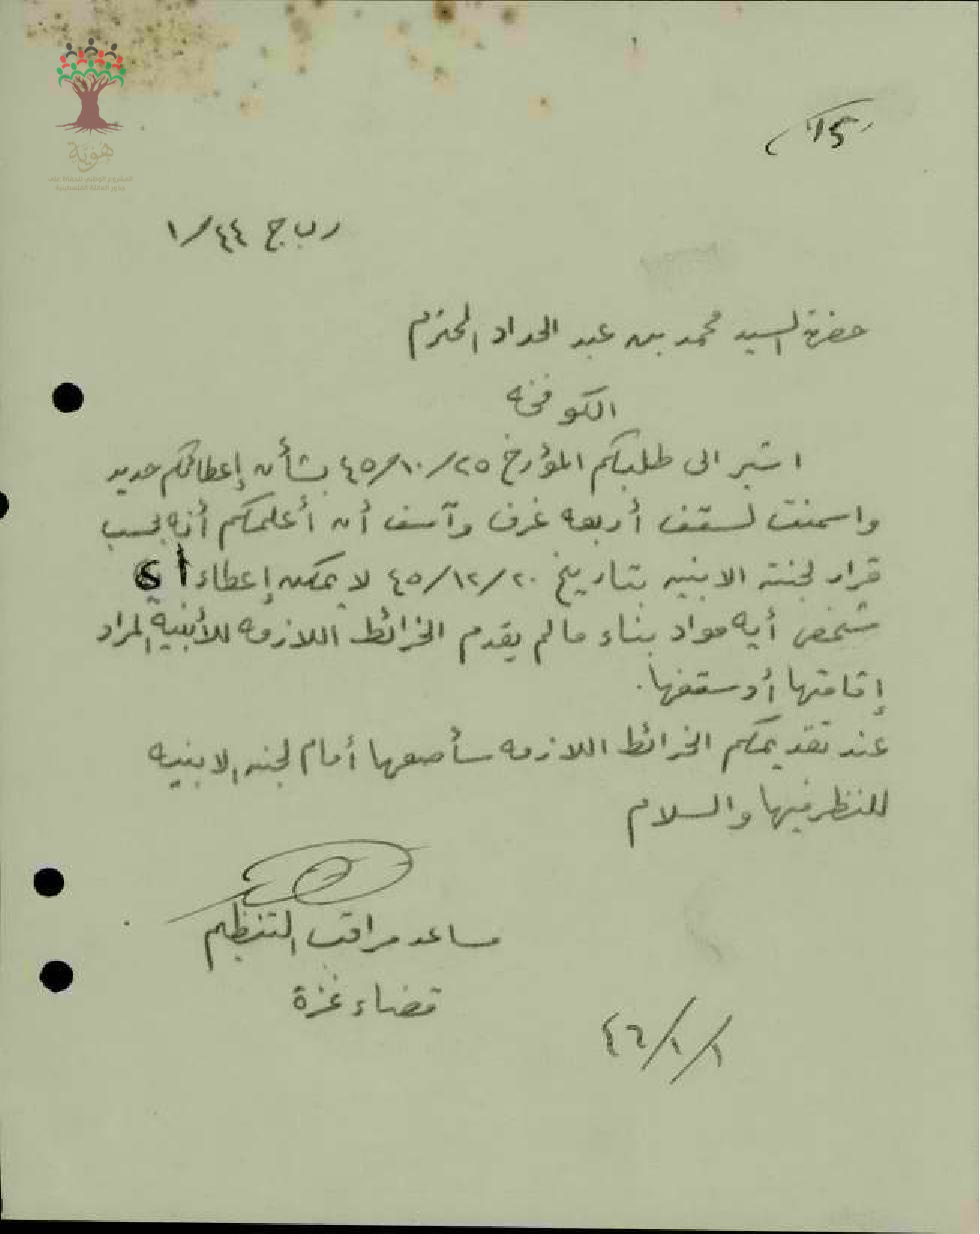 هوية
المشروع الوطني للحفاظ على
جذور العائلة الفلسطينية
١٥
ر ب ج ٤٤/١
حضرة السيد محمد بن عبد الحداد المحترم
الكوفخه
اشير الى طلبكم المؤرخ ٢٥/١٠/٤٥ بشأن إعطائكم حديد
واسمنت لسقف أربعه غرف وآسف أن أعلمكم أنه بحسب
قرار لجنة الابنيه بتاريخ ٢٠/١٢/٤٥ لا يمكن إعطاء أي
شخص أيه مواد بناء ما لم يقدم الخرائط اللازمه للأبنية المراد
إقامتها أو سقفها.
عند تقديمكم الخرائط اللازمه سأضعها أمام لجنه الابنيه
للنظر فيها والسلام
مساعد مراقب التنظيم
قضاء غزة
١/١/٤٦